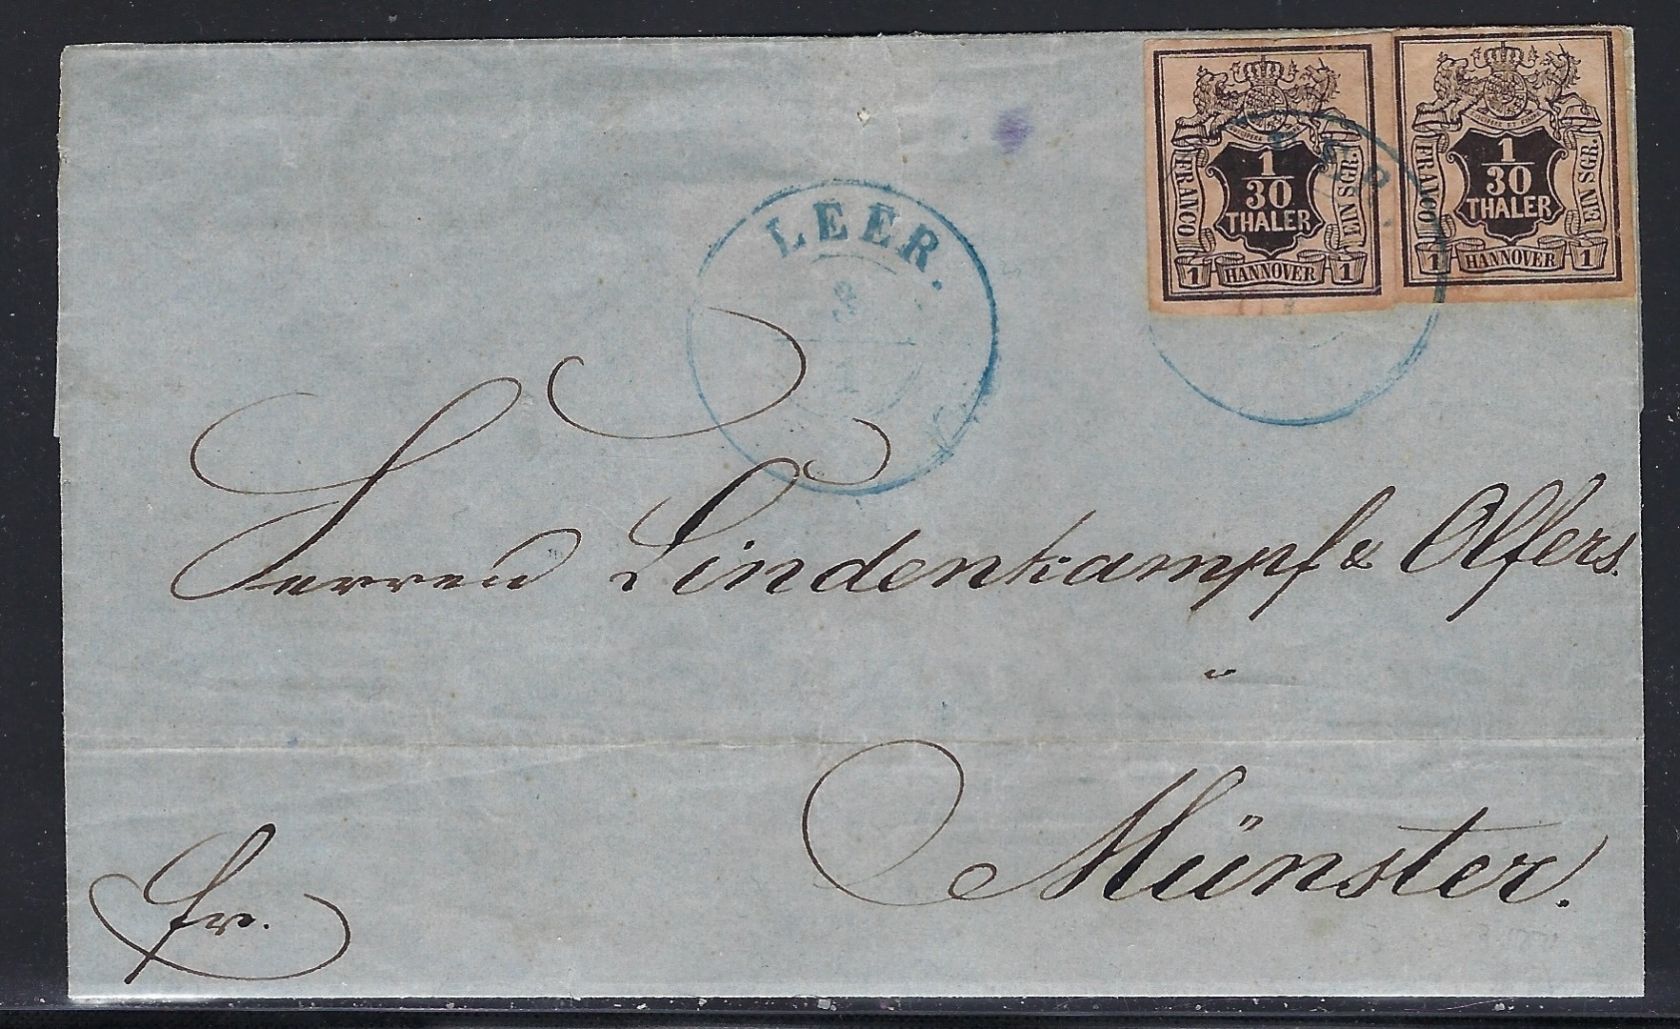 1
30
THALER
FRANCO
EIN SGR.
1 HANNOVER 1
1
30
THALER
FRANCO
EIN SGR.
1 HANNOVER 1
LEER.
3
1
Herren Lindenkampf & Olfers.
Münster.
fr.